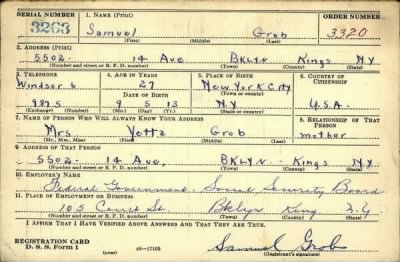 SERIAL NUMBER 1. NAME (Print) ORDER NUMBER
3263 Samuel Grob 3320
(First) (Middle) (Last)
2. ADDRESS (Print)
5502- 14 Ave BKLYN Kings N.Y
(Number and street or R. F. D. number) (Town) (County) (State)
3. TELEPHONE 4. AGE IN YEARS 5. PLACE OF BIRTH 6. COUNTRY OF CITIZENSHIP
Windsor 6 27 New York City
DATE OF BIRTH (Town or county)
9875 9 5 13 N.Y U.S.A.
(Exchange) (Number) (Mo.) (Day) (Yr.) (State or country)
7. NAME OF PERSON WHO WILL ALWAYS KNOW YOUR ADDRESS 8. RELATIONSHIP OF THAT PERSON
Mrs Yetta Grob mother
(Mr., Mrs., Miss) (First) (Middle) (Last)
9. ADDRESS OF THAT PERSON
5502- 14 Ave, BKLYN- Kings N.Y.
(Number and street or R. F. D. number) (Town) (County) (State)
10. EMPLOYER'S NAME
Federal Government- Social Security Board
11. PLACE OF EMPLOYMENT OR BUSINESS
105 Court St Bklyn King N.Y
(Number and street or R. F. D. number) (Town) (County) (State)
I AFFIRM THAT I HAVE VERIFIED ABOVE ANSWERS AND THAT THEY ARE TRUE.
REGISTRATION CARD
D. S. S. Form 1 (over) 16-17105 Samuel Grob
(Registrant's signature)